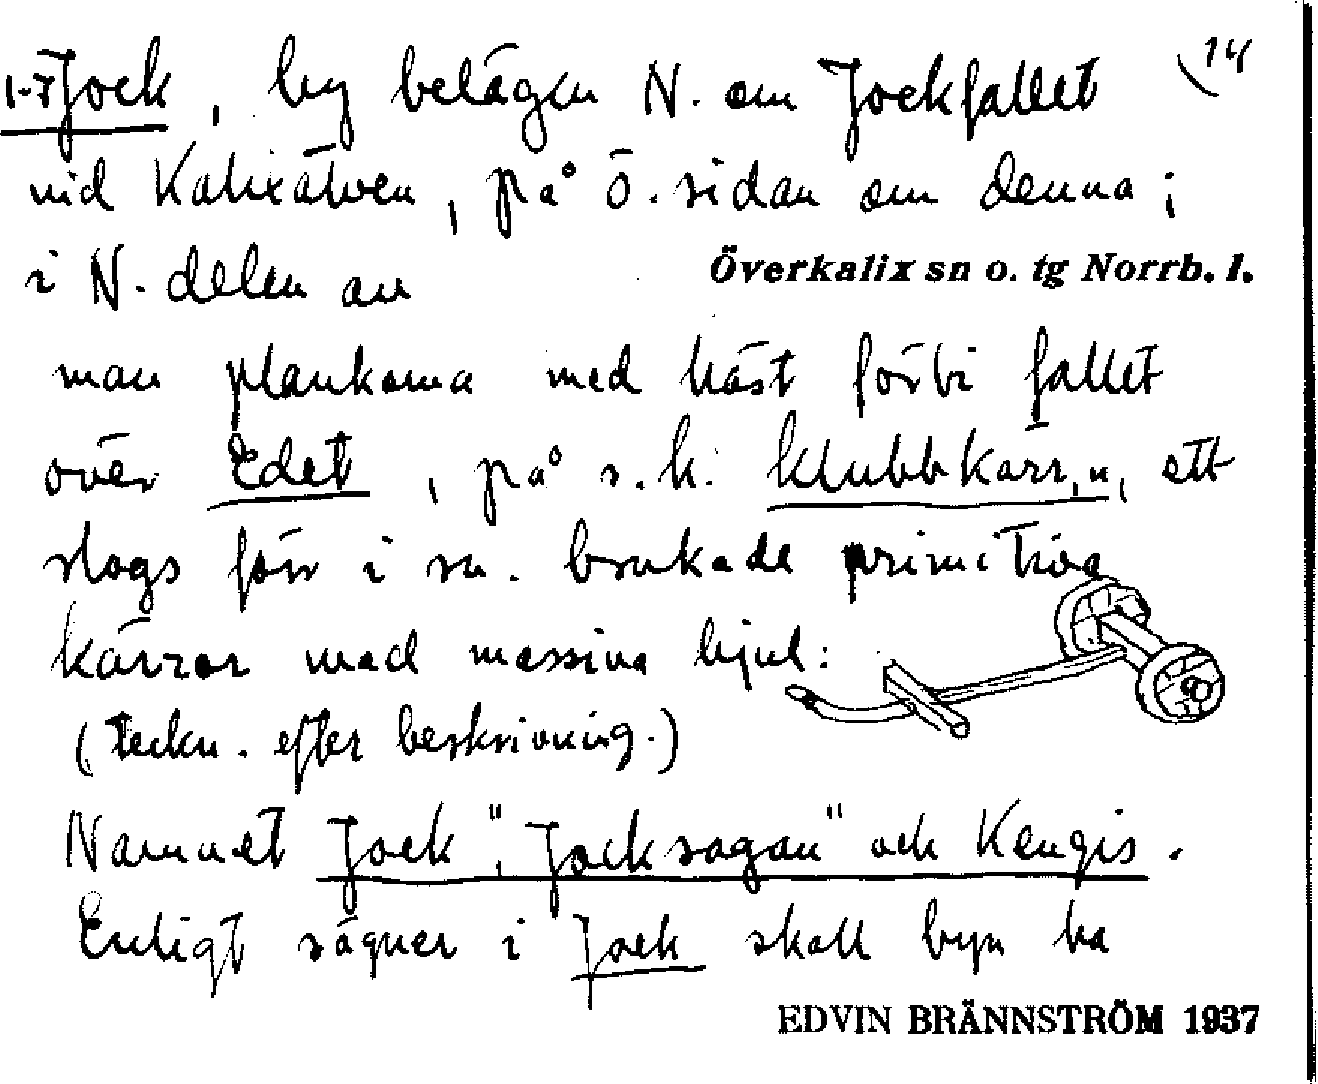 1-7 Jock, by belägen N. om Jockfallet 14
vid Kalixälven, på ö. sidan om denna;
i N. delen av Överkalix sn o. tg Norrb. l.
man plankorna med häst förbi fallet
över Edet, på s.k. klubbkärr,n, ett
slags förr i sn. brukade primitiva
kärror med massiva hjul:
(teckn. efter beskrivning.)
Namnet Jock, "Jocksagan" och Kengis.
Enligt sägner i Jock skall byn ha
EDVIN BRÄNNSTRÖM 1937